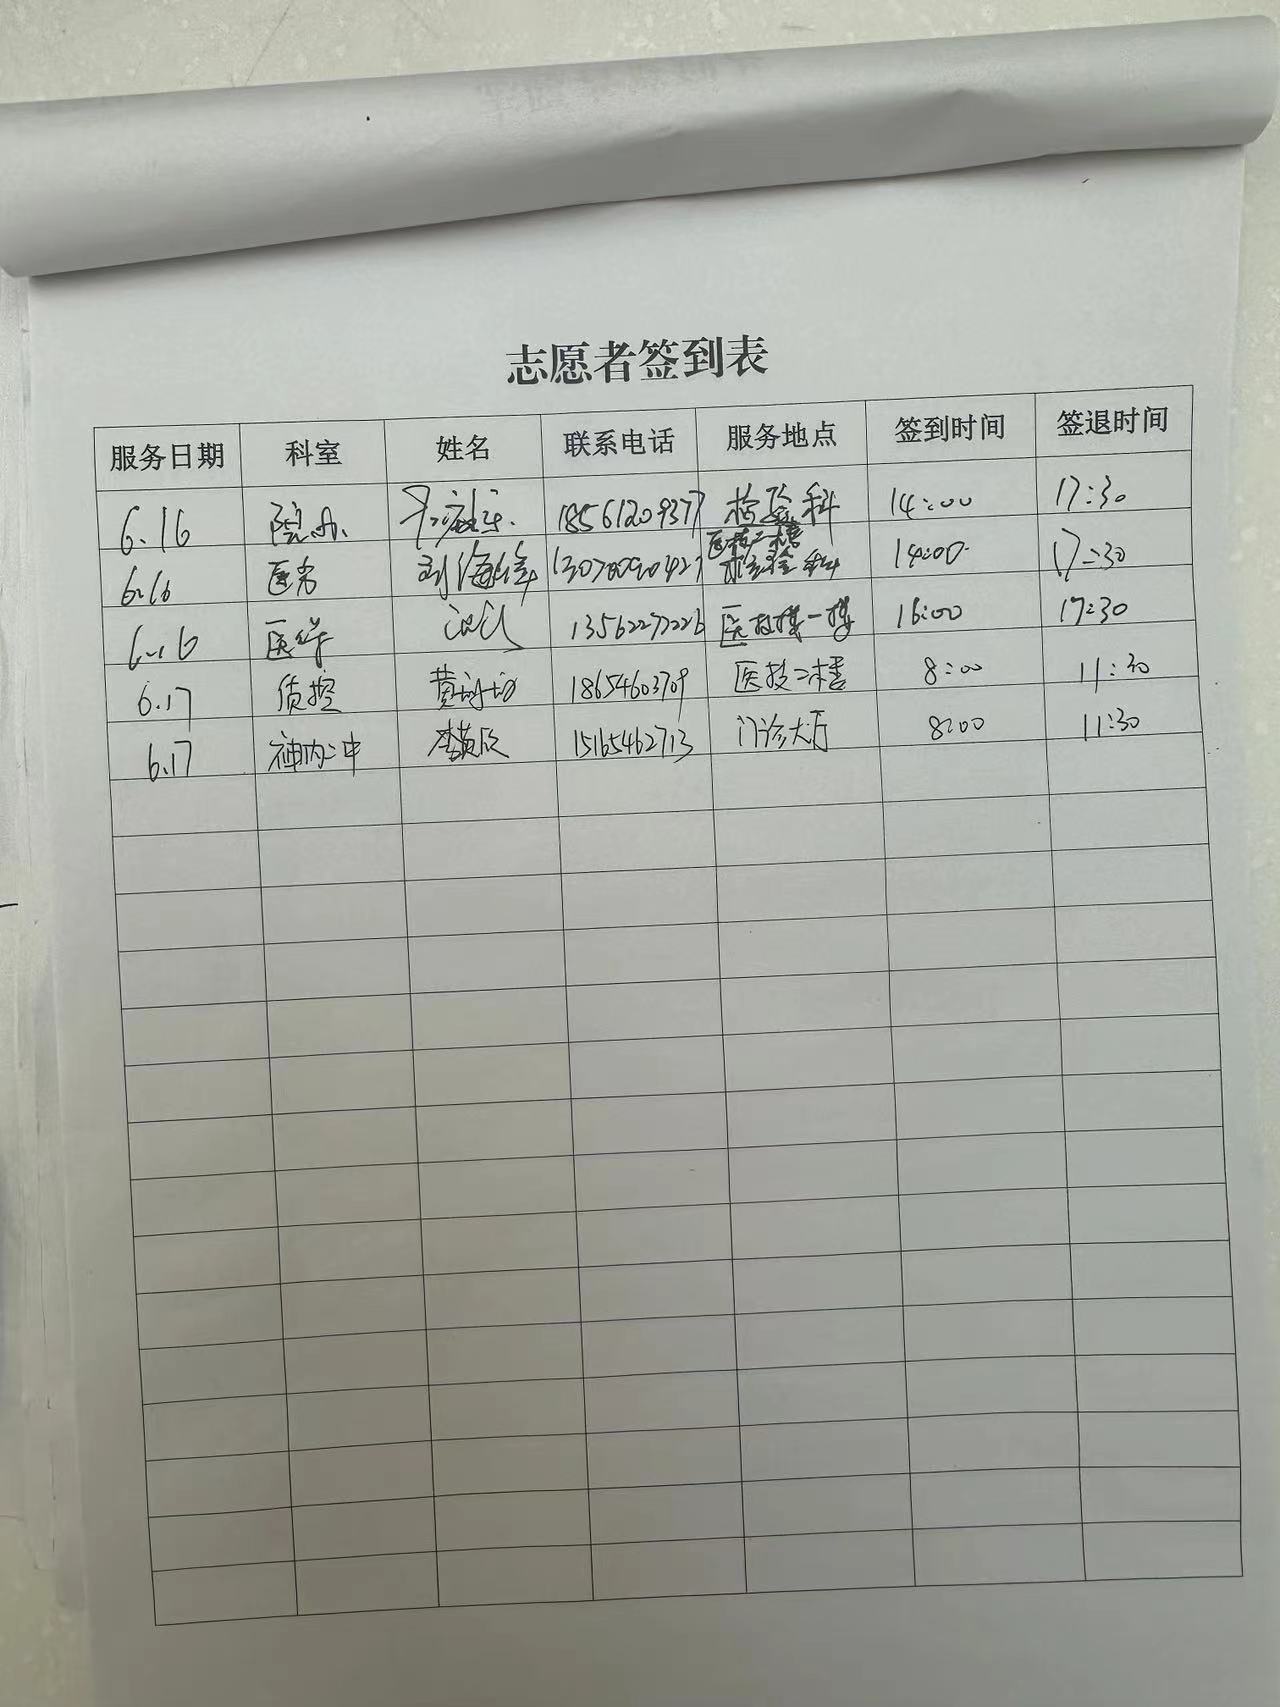 志愿者签到表
服务日期 科室 姓名 联系电话 服务地点 签到时间 签退时间
6.16 院办 18561209377 检验科 14:00 17:30
6.16 医务 刘海峰 医技二楼 14:00 17:30
6.16 13562272226 医技楼一楼 16:00 17:30
6.17 质控 18654603709 医技二楼 8:00 11:30
6.17 神内二 15165462713 门诊大厅 8:00 11:30